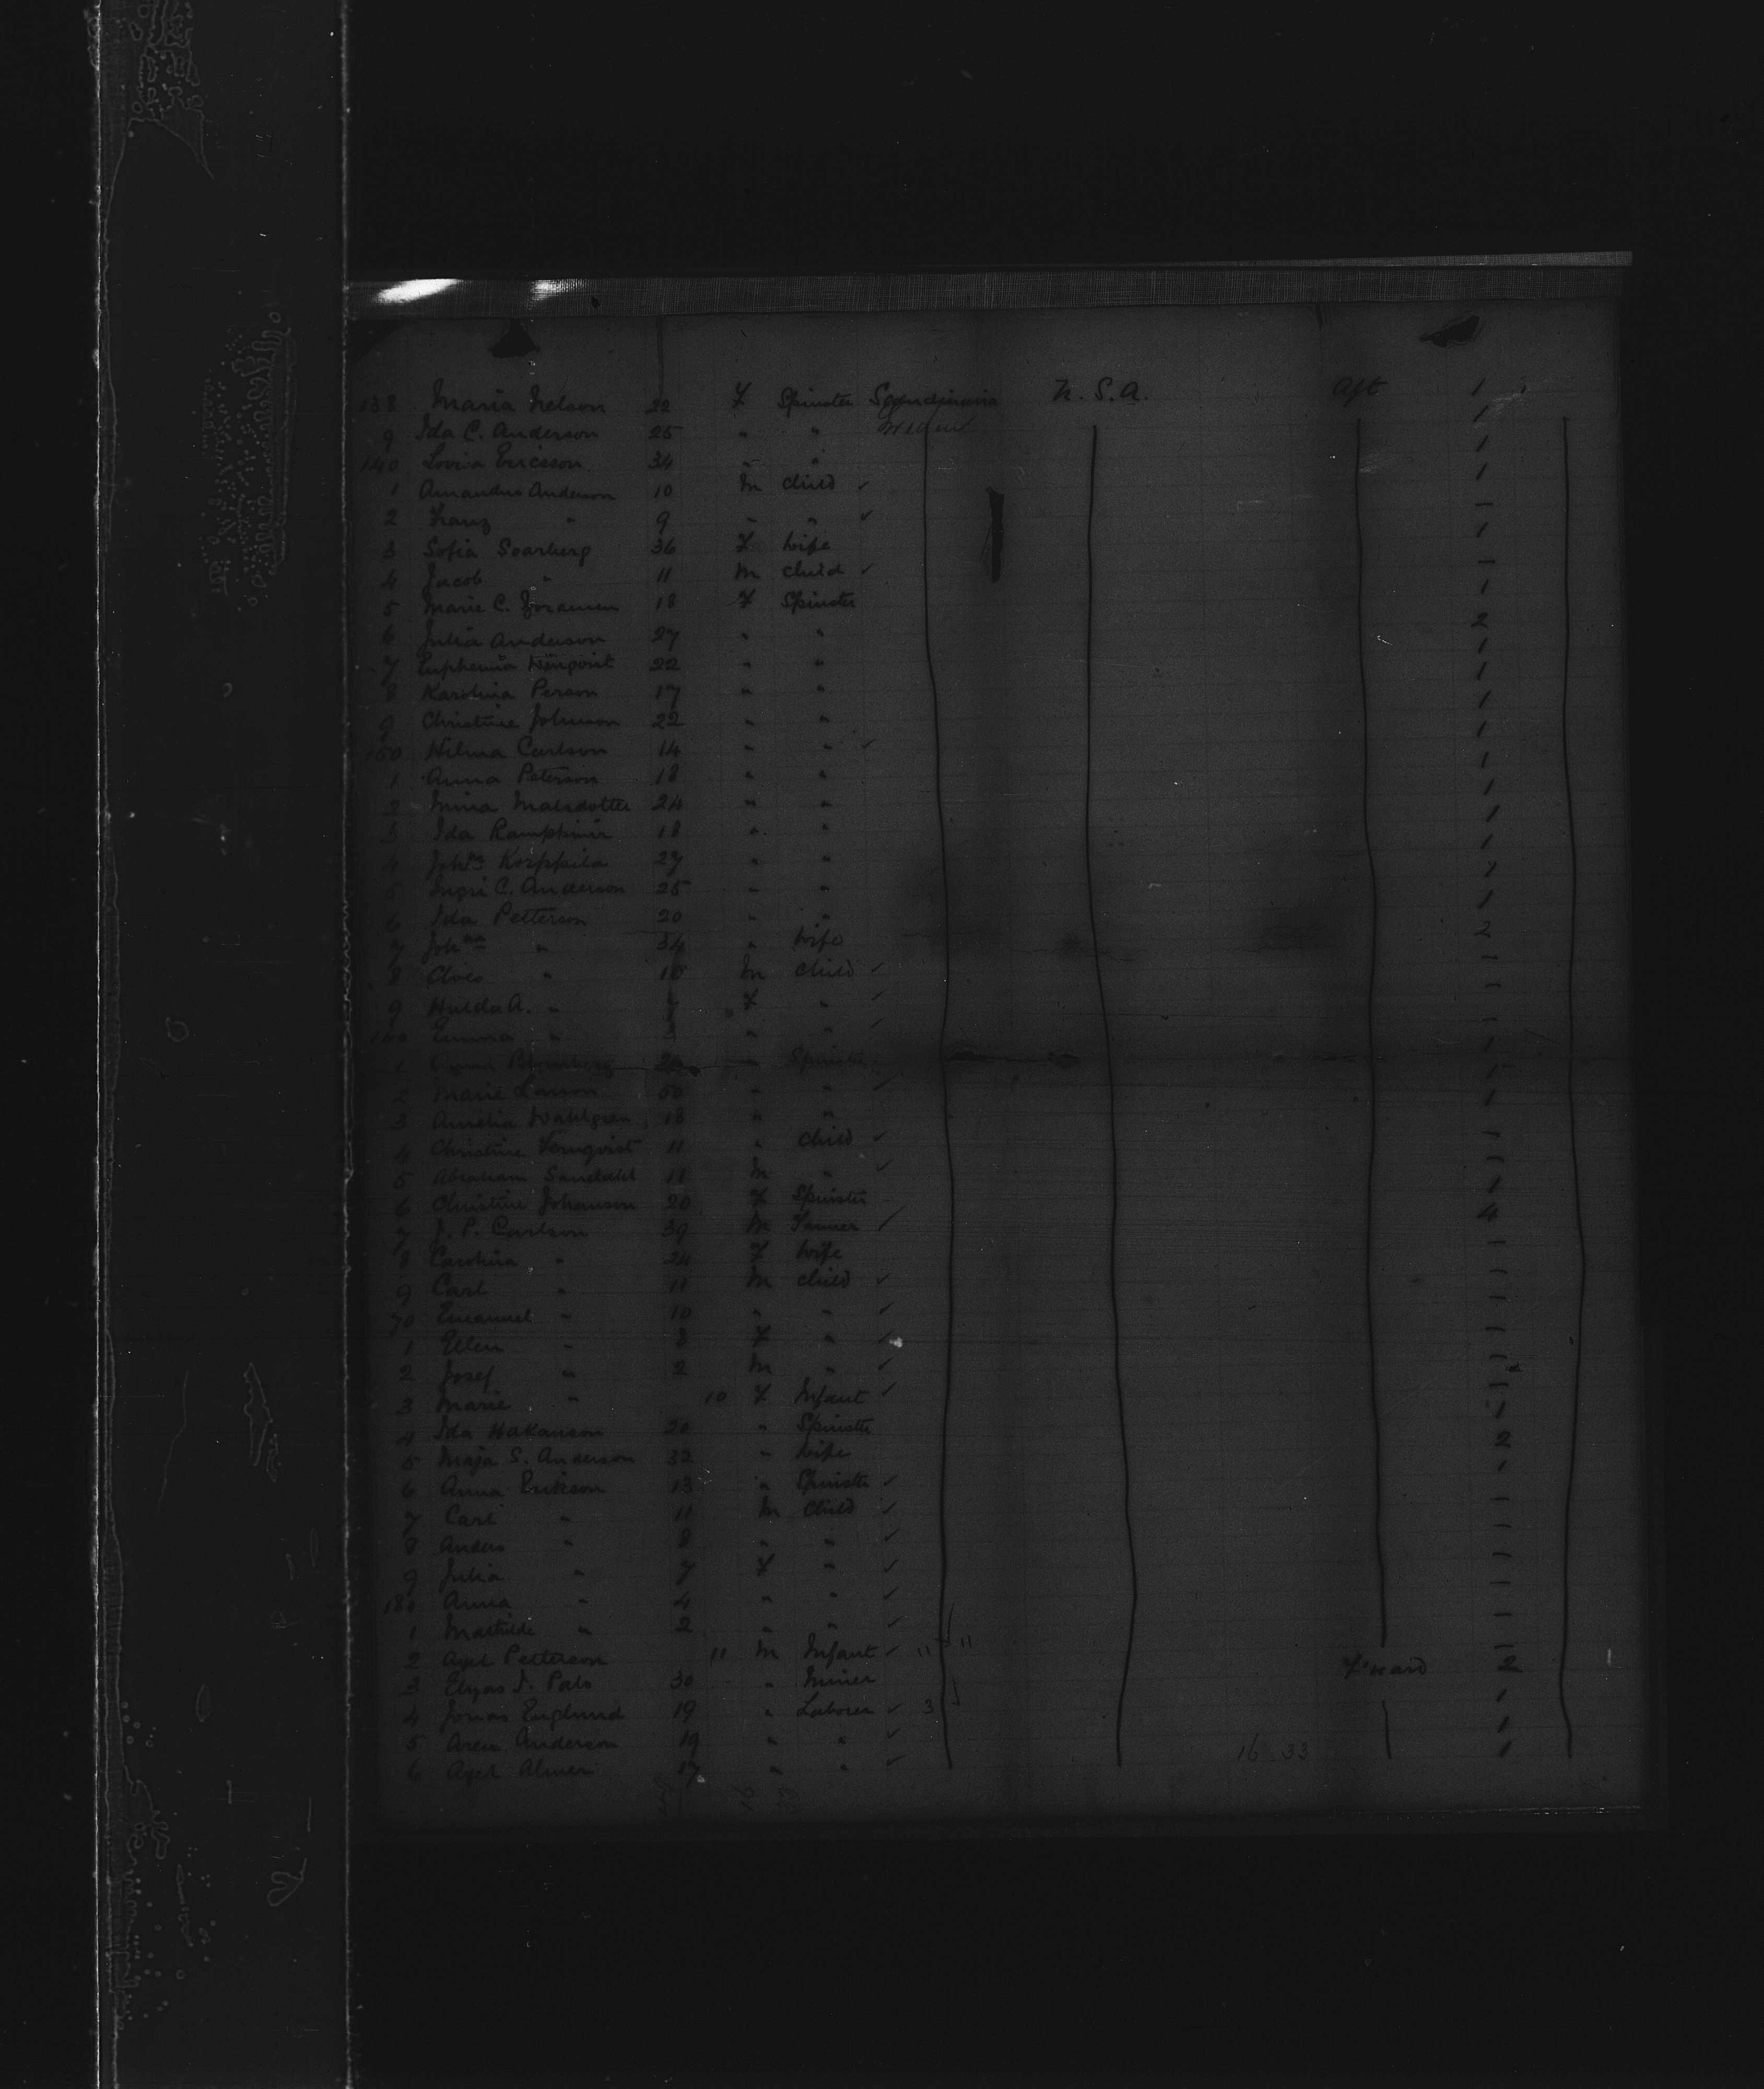 138 Maria Nelson 22 F Spinster Scandinavia U.S.A. Aft 1
9 Ida C. Anderson 25 " " Sweden 1
140 Lovisa Ericsson 34 " " 1
1 Amandus Anderson 10 M Child ✓ 1
2 Franz " 9 " " ✓ —
3 Sofia Soarberg 36 F Wife 1
4 Jacob " 11 M Child ✓ —
5 Marie C. 18 F Spinster 1
6 Julia Anderson 27 " " 2
7 Euphemia 22 " " 1
8 Karolina Person 17 " " 1
9 Christine Johnson 22 " " 1
150 Wilma Carlson 14 " " ✓ 1
1 Anna Peterson 18 " " 1
2 Mina Matsdotter 24 " " 1
3 Ida 18 " " 1
4 Joh<sup>na</sup> Korppila 27 " " 1
5 C. Anderson 25 " " 1
6 Ida Petterson 20 " " 1
7 Joh<sup>na</sup> " 34 " Wife 2
8 " 10 M Child ✓ —
9 Hulda A. " 7 F " ✓ —
160 Emma " 3 " " ✓ —
1 Blomberg " Spinster 1
2 Marie Larson 50 " " ✓ 1
3 Amelia Wahlgren 18 " " 1
4 Christine 11 " Child ✓ —
5 Abraham Sandahl 11 M " ✓ —
6 Christine Johanson 20 F Spinster 1
7 J. P. Carlson 39 M Farmer ✓ 4
8 Carolina " 24 F Wife —
9 Carl " 11 M Child ✓ —
70 Emanuel " 10 " " ✓ —
1 Ellen " 8 F " ✓ —
2 Josef " 2 M " ✓ —
3 Marie " 10 F Infant ✓ —
4 Ida Hakanson 20 " Spinster 1
5 Maja S. Anderson 32 " Wife 2
6 Anna Erikson 13 " Spinster ✓ 1
7 Carl " 11 M Child ✓ —
8 Anders " 8 " " ✓ —
9 Julia " 7 F " ✓ —
180 Anna " 4 " " ✓ —
1 Mathilde " 2 " " ✓ —
2 Axel Petterson 11 M Infant ✓ 11 11 —
3 Elyas J. Palo 30 " Miner F'ward 2
4 Jonas Englund 19 " Laborer ✓ 3 1
5 Aren Anderson 19 " " ✓ 1
6 Axel Almer 17 " " ✓ 16 33 1